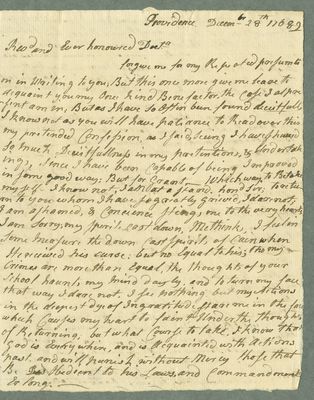 Providence Decem<sup>br</sup> 28<sup>th</sup> 1768
Rev<sup>d</sup> and Ever honoured Doct<sup>r</sup>
forgive me for my Repeated presumti
on in Writing to you, But this once more give me leave to
acquaint you my One kind Benefactor, the Case I at pre
sent am in; But as I have so Often bin found deceitfull,
I know not as you will have patiance to Read over this
my pretended Confession, as I said, seeing I have shewd
so much Deceitfullness in my pretentions, & Undertak
ing, since I have been Capable of being improved
in som good way; But to which way to Betake
my self I know not, I am at a stand, hond Sir, to retur
n to you whom I have so greatly grieved, I dare not,
I am ashamed, & Concience stings me to the very heart,
I am Sorry, my spirit cast down, Methink, I feel in
some measure the down cast spirit of Cain when
He recieved his curse; but no Equal to his; tho my
Crimes are more than Equal, the thoughts of your
School haunts my mind dayly, and to turn my face
that way I dare not: I see nothing but my Actions
in the deepest dye of Ingratitude stare me in the face
which Causes my heart to faint Under the thoughts
of Returning, but what Course to take, I know not
God is Every where, and is Acquainted with Actions
past. and will punish without Mercy those that
Be disobedient to his Laws, and Commandments
So long.